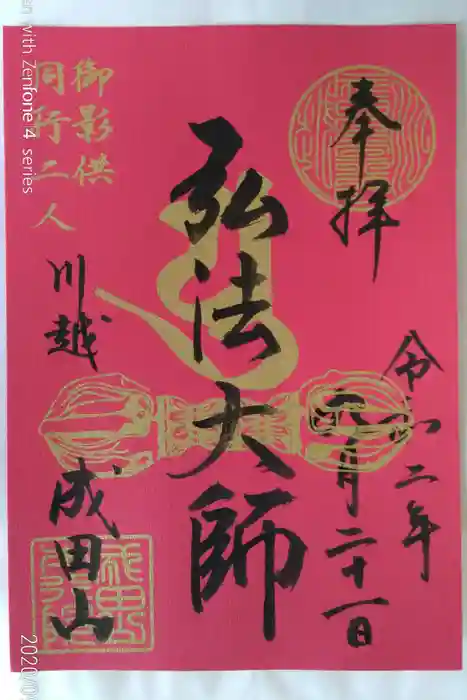 奉拝
令和二年
六月二十一日
弘法大師
御影供
同行二人
川越
成田山
with Zenfone 4 series
2020/0